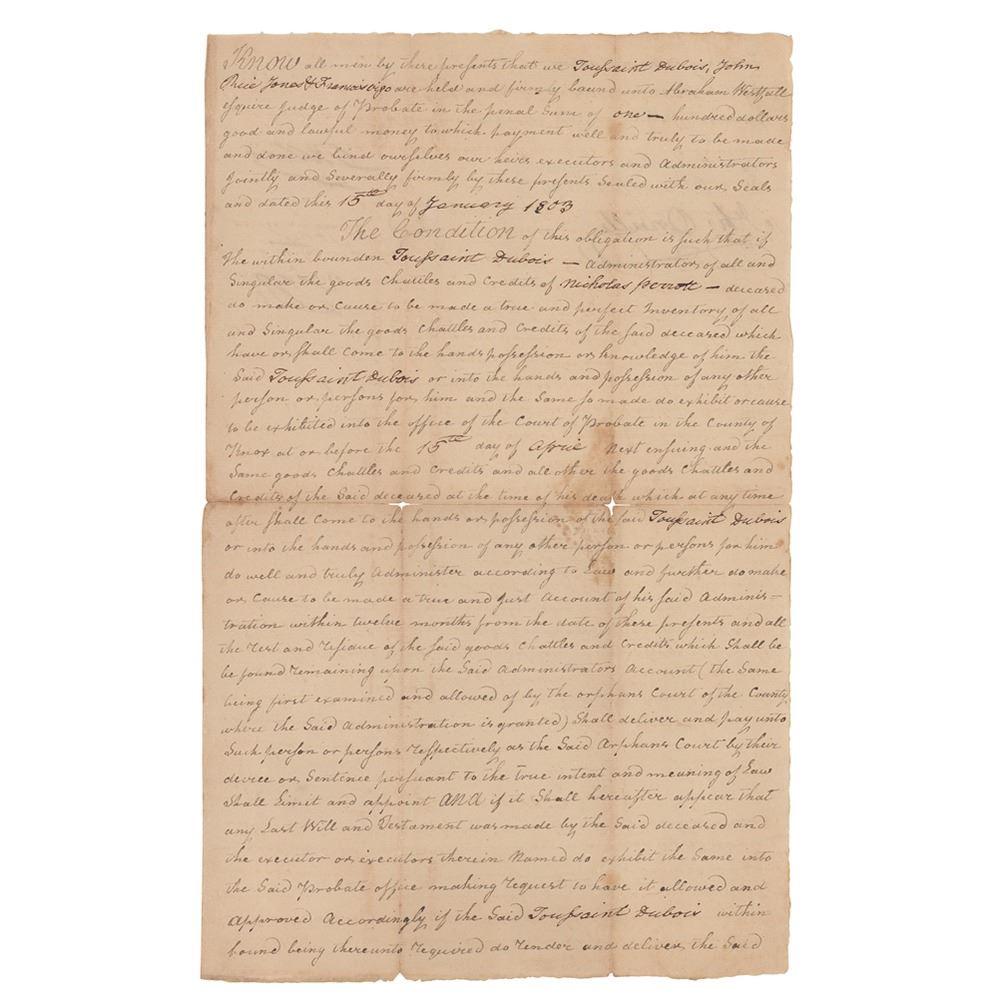 Know all men by these presents that we Toussaint Dubois, John
Rice Jones & Francis vigo are held and firmly bound unto Abraham Westfall
esquire Judge of Probate in the penal Sum of one — hundred dollars
good and lawful money to which payment well and truly to be made
and done we bind ourselves our heirs executors and Administrators
Jointly and Severally firmly by these presents Sealed with our Seals
and dated this 15th day of January 1803
The Condition of this obligation is such that if
the within bounden Toussaint Dubois — Administrator of all and
Singular the goods Chattles and Credits of Nicholas Perrott — deceased
do make or Cause to be made a true and perfect Inventory of all
and Singular the goods Chattles and Credits of the said deceased which
have or shall Come to the hands possession or knowledge of him the
Said Toussaint Dubois or into the hands and possession of any other
person or persons for him and the Same so made do exhibit or cause
to be exhibited into the office of the Court of Probate in the County of
Knox at or before the 15th day of April Next ensuing and the
Same goods Chattles and Credits and all other the goods Chattles and
Credits of the Said deceased at the time of his death which at any time
after shall Come to the hands or possession of the said Toussaint Dubois
or into the hands and possession of any other person or persons for him
do well and truly Administer according to Law and further do make
or Cause to be made a true and Just Account of his said Adminis=
tration within twelve months from the date of these presents and all
the Rest and Residue of the said goods Chattles and Credits which Shall be
be found Remaining upon the Said Administrators Account (the Same
being first examined and allowed of by the orphans Court of the County
where the Said Administration is granted) Shall deliver and pay unto
Such person or persons Respectively as the Said Orphans Court by their
decree or Sentence persuant to the true intent and meaning of Law
Shall Limit and appoint And if it Shall hereafter appear that
any Last Will and Testament was made by the Said deceased and
the executor or executors therein Named do exhibit the Same into
the Said Probate office making Request to have it allowed and
Approved Accordingly if the Said Toussaint Dubois within
bound being thereunto Required do Render and deliver the Said